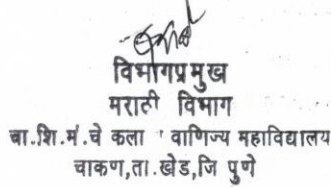 विभागप्रमुख
मराठी विभाग
चा.शि.मं.चे कला वाणिज्य महाविद्यालय
चाकण,ता.खेड,जि पुणे